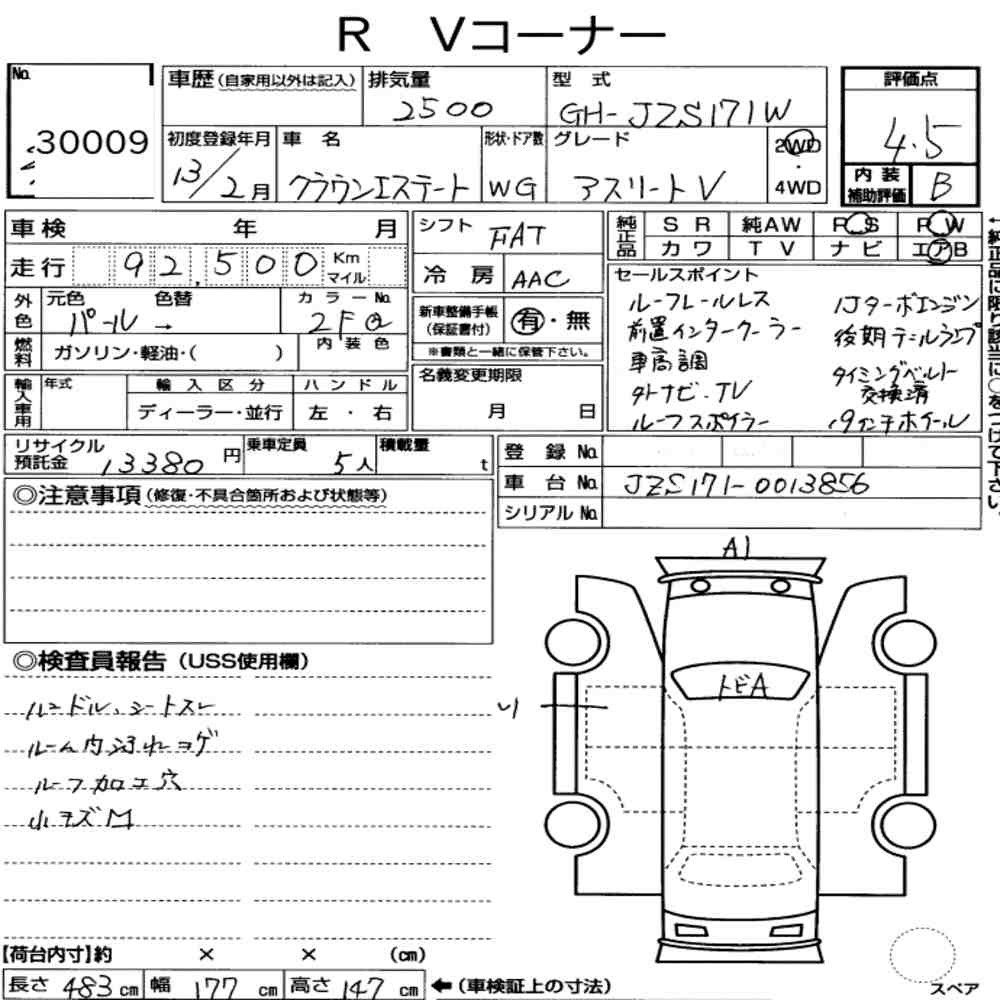 R Vコーナー
No. 30009
車歴(自家用以外は記入)
排気量 2500
型式 GH-JZS171W
評価点 4.5
初度登録年月 13/2月
車名 クラウンエステート
形状・ドア数 WG
グレード アスリートV
2WD・4WD
内装補助評価 B
車検 年 月
走行 92,500 Km マイル
シフト FAT
冷房 AAC
純正品 SR 純AW PS PW
カワ TV ナビ エアB
←純正品に限り該当に○をつけて下さい。
外色 元色 パール → 色替
カラーNo. 2FQ
内装色
燃料 ガソリン・軽油・( )
新車整備手帳(保証書付) 有・無
※書類と一緒に保管下さい。
輸入車用 年式 輸入区分 ディーラー・並行 ハンドル 左・右
名義変更期限 月 日
セールスポイント
ルーフレールレス
前置インタークーラー
車高調
外ナビ.TV
ルーフスポイラー
1Jターボエンジン
後期テールランプ
タイミングベルト
交換済
19インチホイール
リサイクル預託金 13380円
乗車定員 5人
積載量 t
登録No.
車台No. JZS171-0013856
シリアルNo.
◎注意事項(修復・不具合箇所および状態等)
◎検査員報告(USS使用欄)
ハンドル、シートスレ
ルーム内汚れコゲ
ルーフ加工穴
小キズM
A1
トビA
【荷台内寸】約 × × (cm)
長さ 483 cm 幅 177 cm 高さ 147 cm ←(車検証上の寸法)
スペア